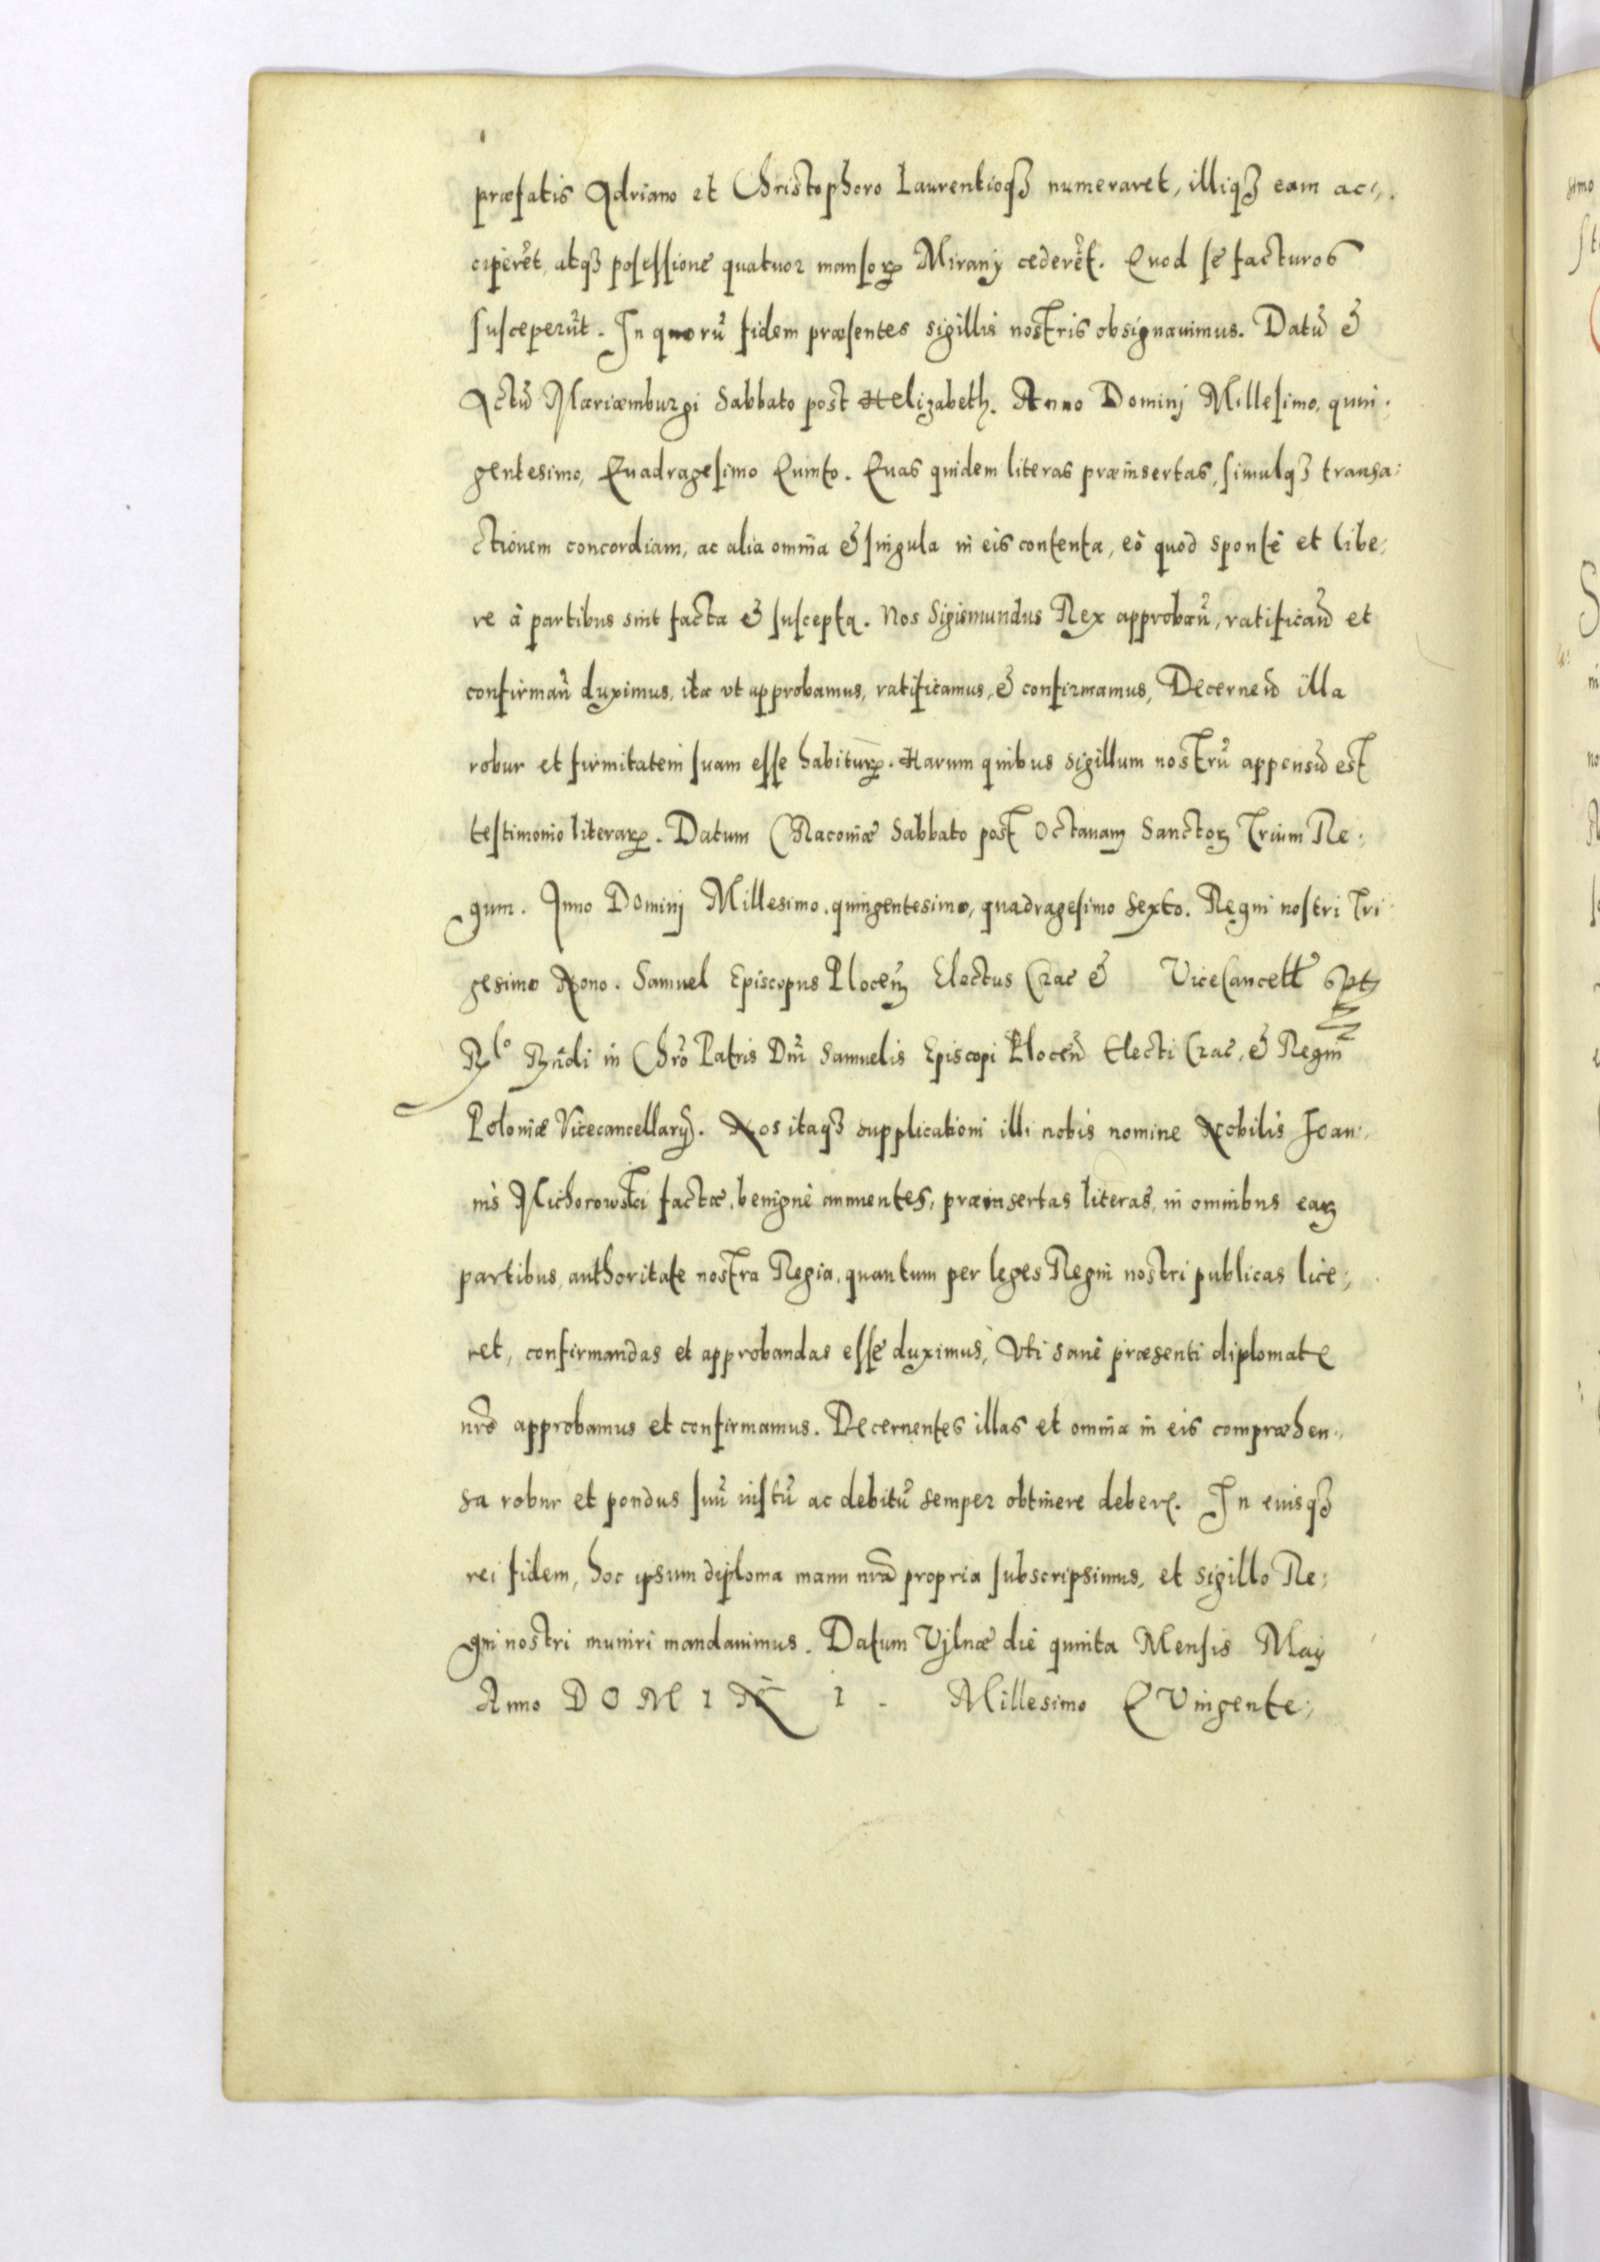 præfatis Adriano et Christophoro Laurentioqꝫ numeraret, illiqꝫ eam ac,,
ciperẽt, atqꝫ posessionẽ quatuor mansoꝝ Mirany cederẽt. Quod se facturos
susceperũt. In quorũ fidem præsentes sigillis nostris obsignauimus. Datũ &
Actũ Mariæmburgi Sabbato post Helizabeth. Anno Dominj Millesimo, quin,
gentesimo, Quadragesimo Quinto. Quas quidem literas præinsertas, simulqꝫ transa,
ctionem concordiam, ac alia omnia & singula in eis contenta, eò quod spontè et libe,
re à partibus sint facta & suscepta. Nos Sigismundus Rex approbañ, ratificañd et
confirmañ duximus, ita vt approbamus, ratificamus, & confirmamus, Decerneñd illa
robur et firmitatem suam esse habituꝝ. Harum quibus sigillum nostrũ appensũ est
testimonio literaꝝ. Datum CRacoviæ Sabbato post Octauam Sanctoꝝ Trium Re,
gum. Anno Dominj Millesimo, quingentesimo, quadragesimo Sexto. Regni nostri Tri
gesimo Nono. Samuel Episcopus Ploceñ Electus Crac & ViceCancell̃ sp̃t
Rlo Rñdi in Chrõ Patris Dñi Samuelis Episcopi Ploceñ Electi Crac, & Regni
Poloniæ Vicecancellarÿ. Nos itaqꝫ supplicationi illi nobis nomine Nobilis Joan,
nis Michorowski factæ, benignè annuentes, præinsertas literas, in omnibus eaꝝ
partibus, authoritate nostra Regia, quantum per leges Regni nostri publicas lice,
ret, confirmandas et approbandas esse duximus, Vti sanè præsenti diplomate
nr̃o approbamus et confirmamus. Decernentes illas et omnia in eis compræhen,
sa robur et pondus suũ iustũ ac debitũ semper obtinere debere. In cuiusqꝫ
rei fidem, hoc ipsum diploma manu nr̃a propria subscripsimus, et sigillo Re,
gni nostri muniri mandauimus. Datum Vjlnæ die quinta Mensis Maij
Anno DOMINI. Millesimo QVingente,